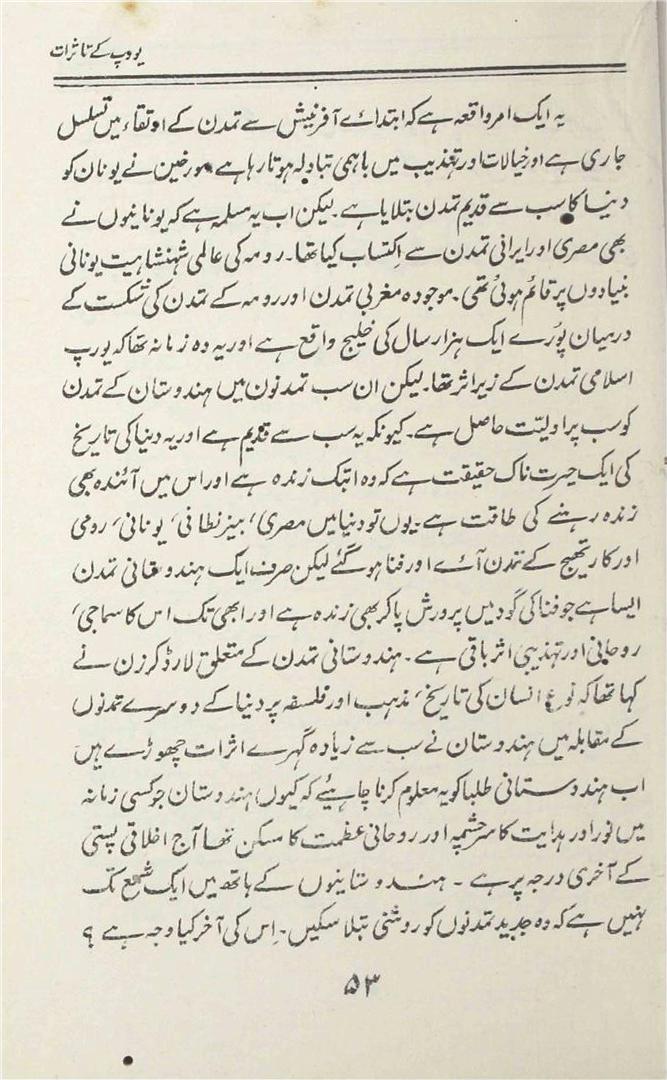 یورپ کے تاثرات
یہ ایک امر واقعہ ہے کہ ابتدائے آفرنیش سے تمدن کے اوتقاء میں تسلسل
جاری ہے اور خیالات اور تغذیب میں باہمی تبادلہ ہوتا رہا ہے مورخین نے یونان کو
دنیا کا سب سے قدیم تمدن بتلایا ہے۔ لیکن اب یہ مسلمہ ہے کہ یونانیوں نے
بھی مصری اور ایرانی تمدن سے اکتساب کیا تھا۔ رومہ کی عالمی شہنشاہیت یونانی
بنیادوں پر قائم ہوئی تھی۔ موجودہ مغربی تمدن اور رومہ کے تمدن کی شکست کے
درمیان پورے ایک ہزار سال کی خلیج واقع ہے اور یہ وہ زمانہ تھا کہ یورپ
اسلامی تمدن کے زیر اثر تھا۔ لیکن ان سب تمدنون میں ہندوستان کے تمدن
کو سب پر اولیّت حاصل ہے۔ کیونکہ یہ سب سے قدیم ہے اور یہ دنیا کی تاریخ
کی ایک حیرت ناک حقیقت ہے کہ وہ ابتک زندہ ہے اور اس میں آئندہ بھی
زندہ رہنے کی طاقت ہے۔ یوں تو دنیا میں مصری، بیزنطانی، یونانی، رومی
اور کارتھیج کے تمدن آئے اور فنا ہو گئے لیکن صرف ایک ہندوستانی تمدن
ایسا ہے جو فنا کی گود میں پرورش پا کر بھی زندہ ہے اور ابھی تک اس کا سماجی،
روحانی اور تہذیبی اثر باقی ہے۔ ہندوستانی تمدن کے متعلق لارڈ کرزن نے
کہا تھا کہ نوع انسان کی تاریخ، مذہب اور فلسفہ پر دنیا کے دوسرے تمدنوں
کے مقابلہ میں ہندوستان نے سب سے زیادہ گہرے اثرات چھوڑے ہیں
اب ہندوستانی طلبا کو یہ معلوم کرنا چاہیئے کہ کیوں ہندوستان جو کسی زمانہ
میں نور اور ہدایت کا سرچشمہ اور روحانی عظمت کا مسکن تھا آج اخلاقی پستی
کے آخری درجہ پر ہے۔ ہندوستانیوں کے ہاتھ میں ایک شمع تک
نہیں ہے کہ وہ جدید تمدنوں کو روشنی بتلا سکیں۔ اِس کی آخر کیا وجہ ہے ؟
۵۳